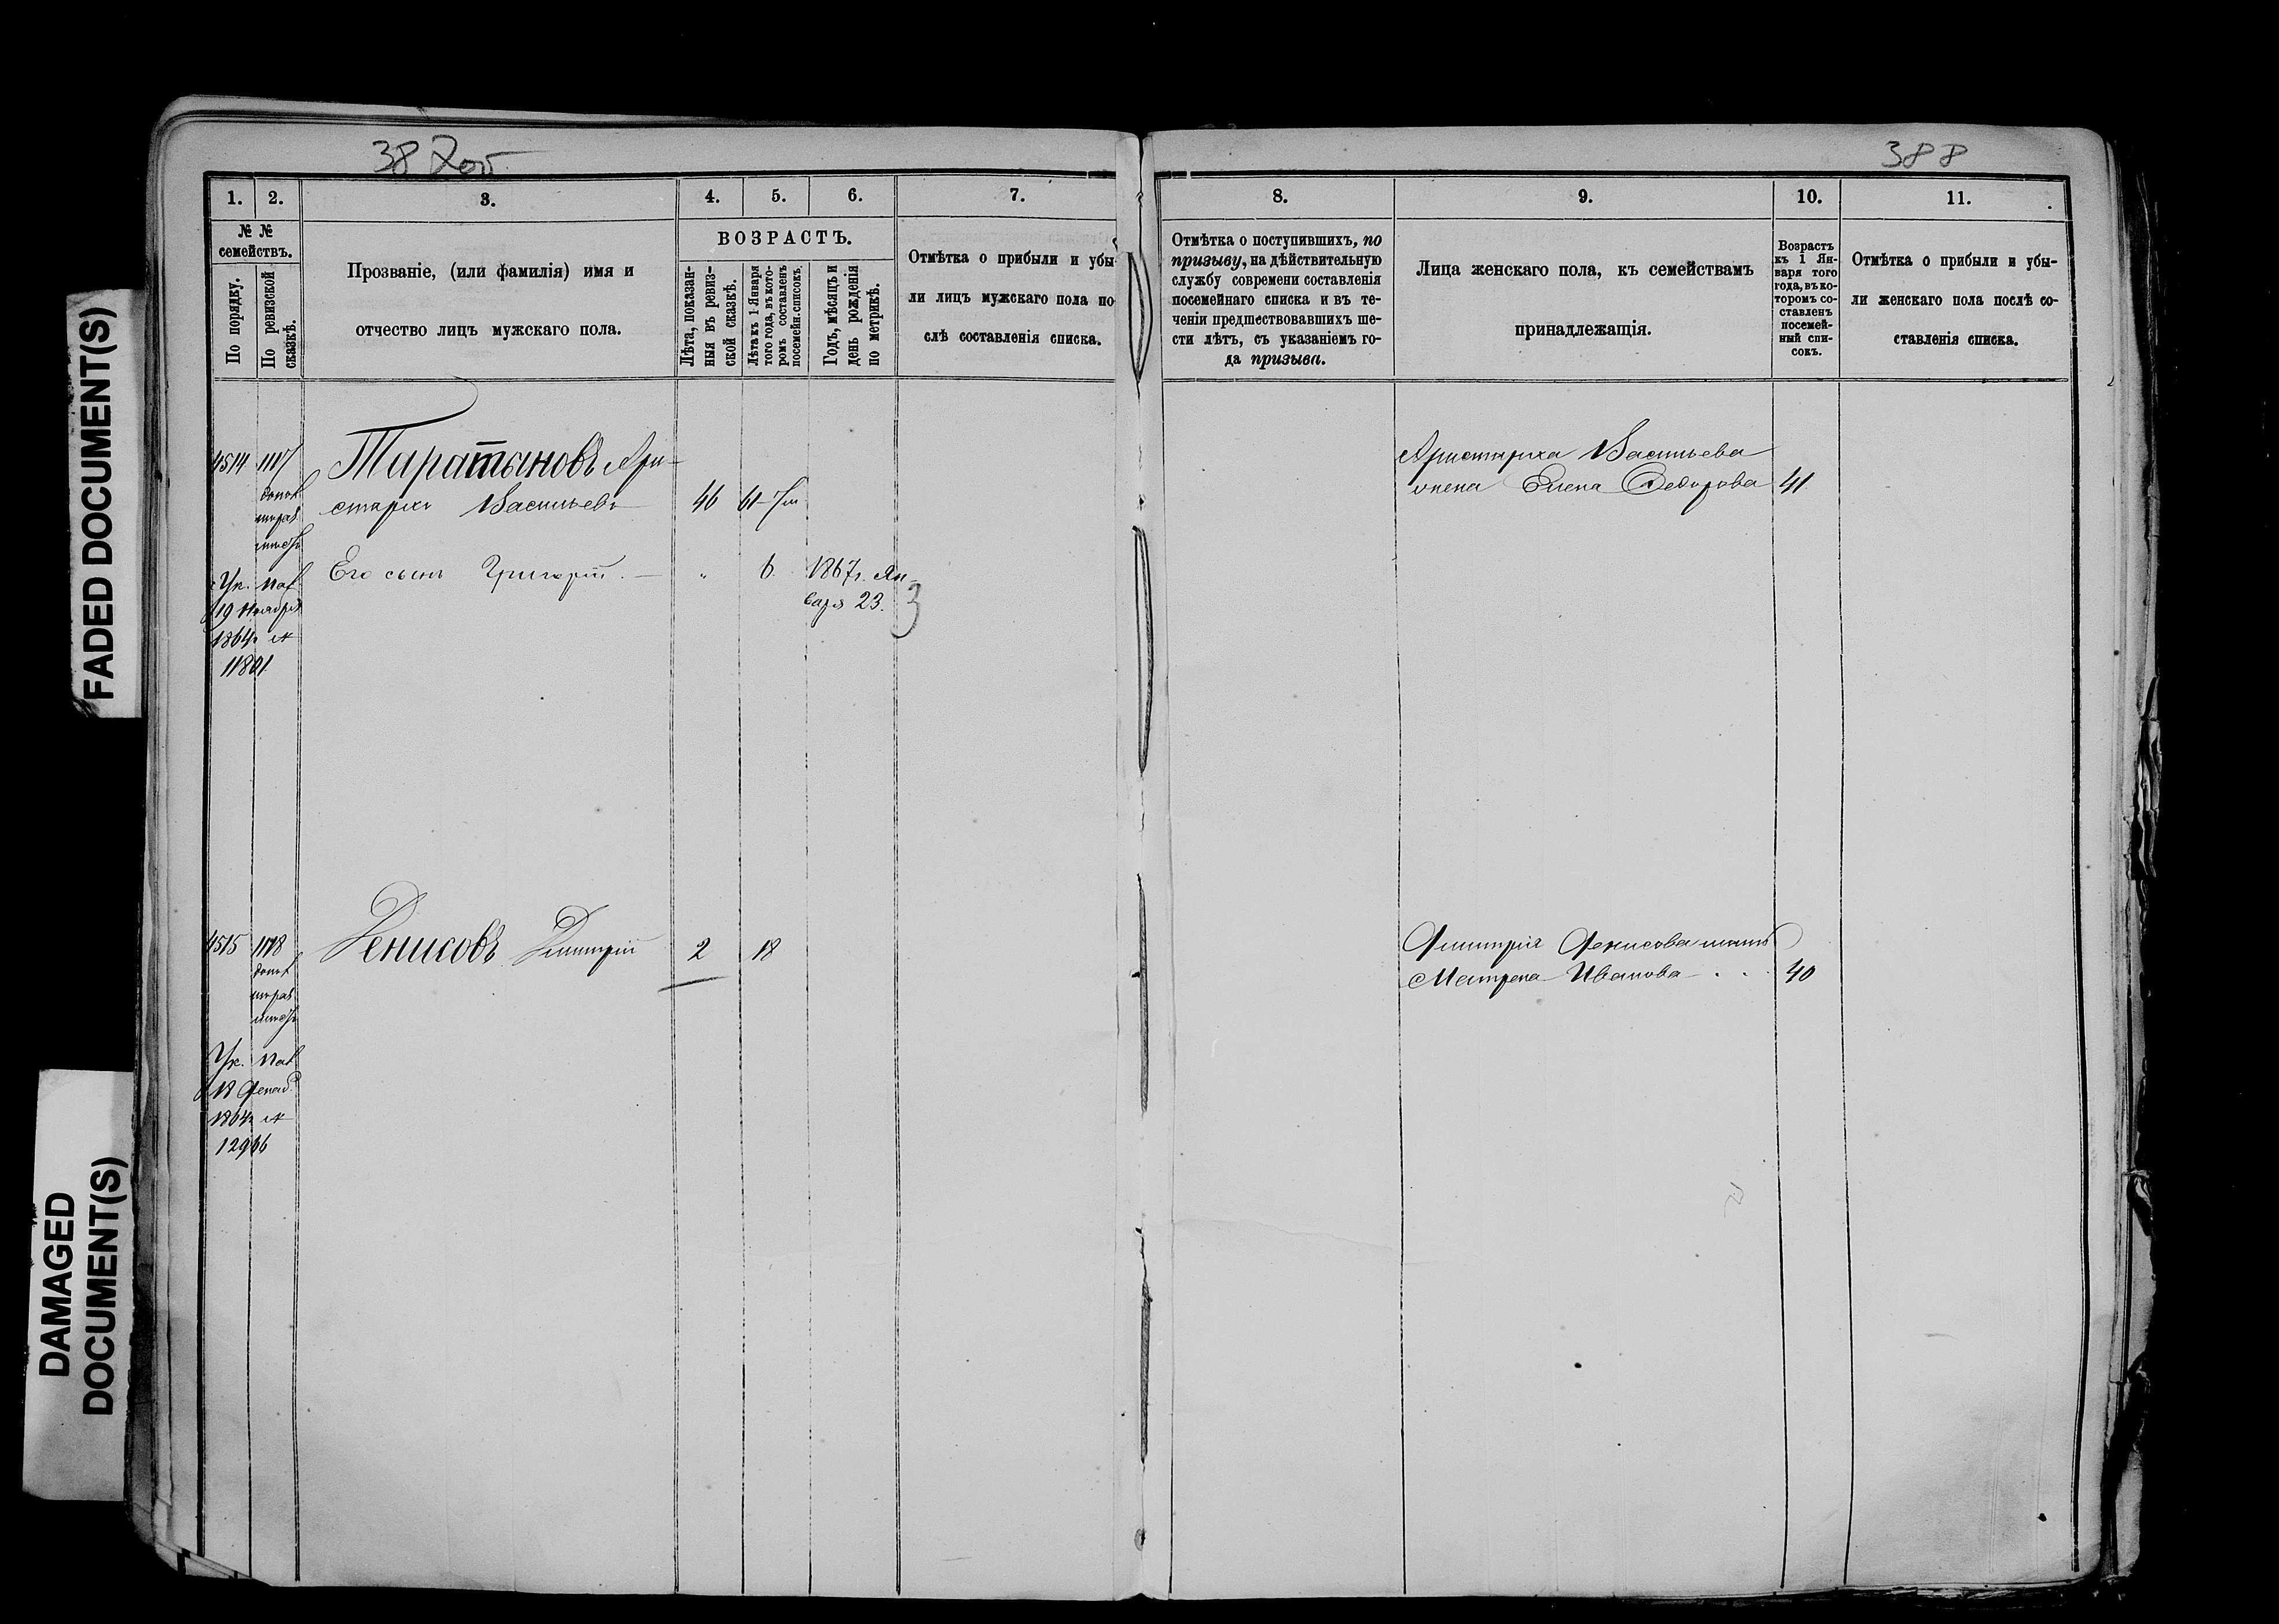 FADED DOCUMENT(S)
DAMAGED
DOCUMENT(S)
387об
1. 2. 3. 4. 5. 6. 7.
№ №
семействъ.
По порядку.
По ревизской
сказкѣ.
Прозваніе, (или фамилія) имя и
отчество лицъ мужскаго пола.
ВОЗРАСТЪ.
Лѣта, показан-
ныя въ ревиз-
ской сказкѣ.
Лѣта къ 1 Января
того года, въ кото-
ромъ составленъ
посемейн. списокъ.
Годъ, мѣсяцъ и
день рожденія
по метрикѣ.
Отмѣтка о прибыли и убы-
ли лицъ мужскаго пола по-
слѣ составленія списка.
4514 1117 Таратыновъ Ари-
стархъ Васильевъ 46 61
Его сынъ Григорій. — " 6. 1867г. Ян-
варя 23. 3
Ук. Пал.
19 Ноября
1864г №
11801
4515 1118 Денисовъ Дмитрій 2 18
Ук. Пал.
18 Декаб.
1864г №
12966
388
8. 9. 10. 11.
Отмѣтка о поступившихъ, по
призыву, на дѣйствительную
службу современи составленія
посемейнаго списка и въ те-
ченіи предшествовавшихъ ше-
сти лѣтъ, съ указаніемъ го-
да призыва.
Лица женскаго пола, къ семействамъ
принадлежащія.
Возрастъ
къ 1 Ян-
варя того
года, въ ко-
торомъ со-
ставленъ
посемей-
ный спи-
сокъ.
Отмѣтка о прибыли и убы-
ли женскаго пола послѣ со-
ставленія списка.
Аристарха Васильева
жена Елена Федорова 41
Дмитрія Денисова мать
Матрена Иванова 40